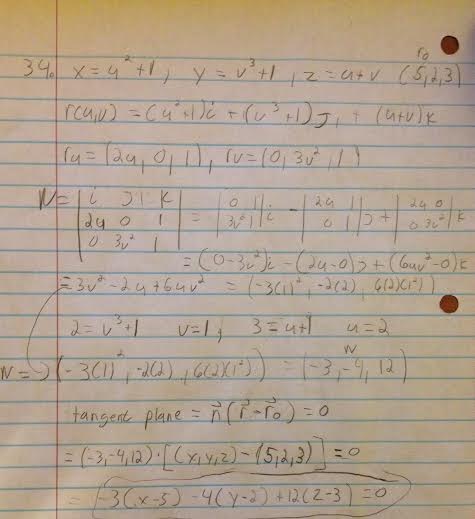 r₀
34. x = u² + 1, y = v³ + 1, z = u + v (5, 2, 3)
r(u,v) = (u² + 1)i + (v³ + 1)J, + (u+v)k
ru = (2u, 0, 1), rv = (0, 3v², 1)
N = | i J k | = | 0 1 | i - | 2u 1 | J + | 2u 0 | k
| 2u 0 1 | | 3v² 1 | | 0 1 | | 0 3v² |
| 0 3v² 1 |
= (0 - 3v²)i - (2u - 0)J + (6uv² - 0)k
= 3v² - 2u + 6uv² = (-3(1)², -2(2), 6(2)(1²))
2 = v³ + 1 v = 1, 3 = u + 1 u = 2
N
N = (-3(1)², -2(2), 6(2)(1²)) = (-3, -4, 12)
tangent plane = n⃗(r⃗ - r⃗₀) = 0
= (-3, -4, 12) · [(x, y, z) - (5, 2, 3)] = 0
= -3(x - 5) - 4(y - 2) + 12(z - 3) = 0